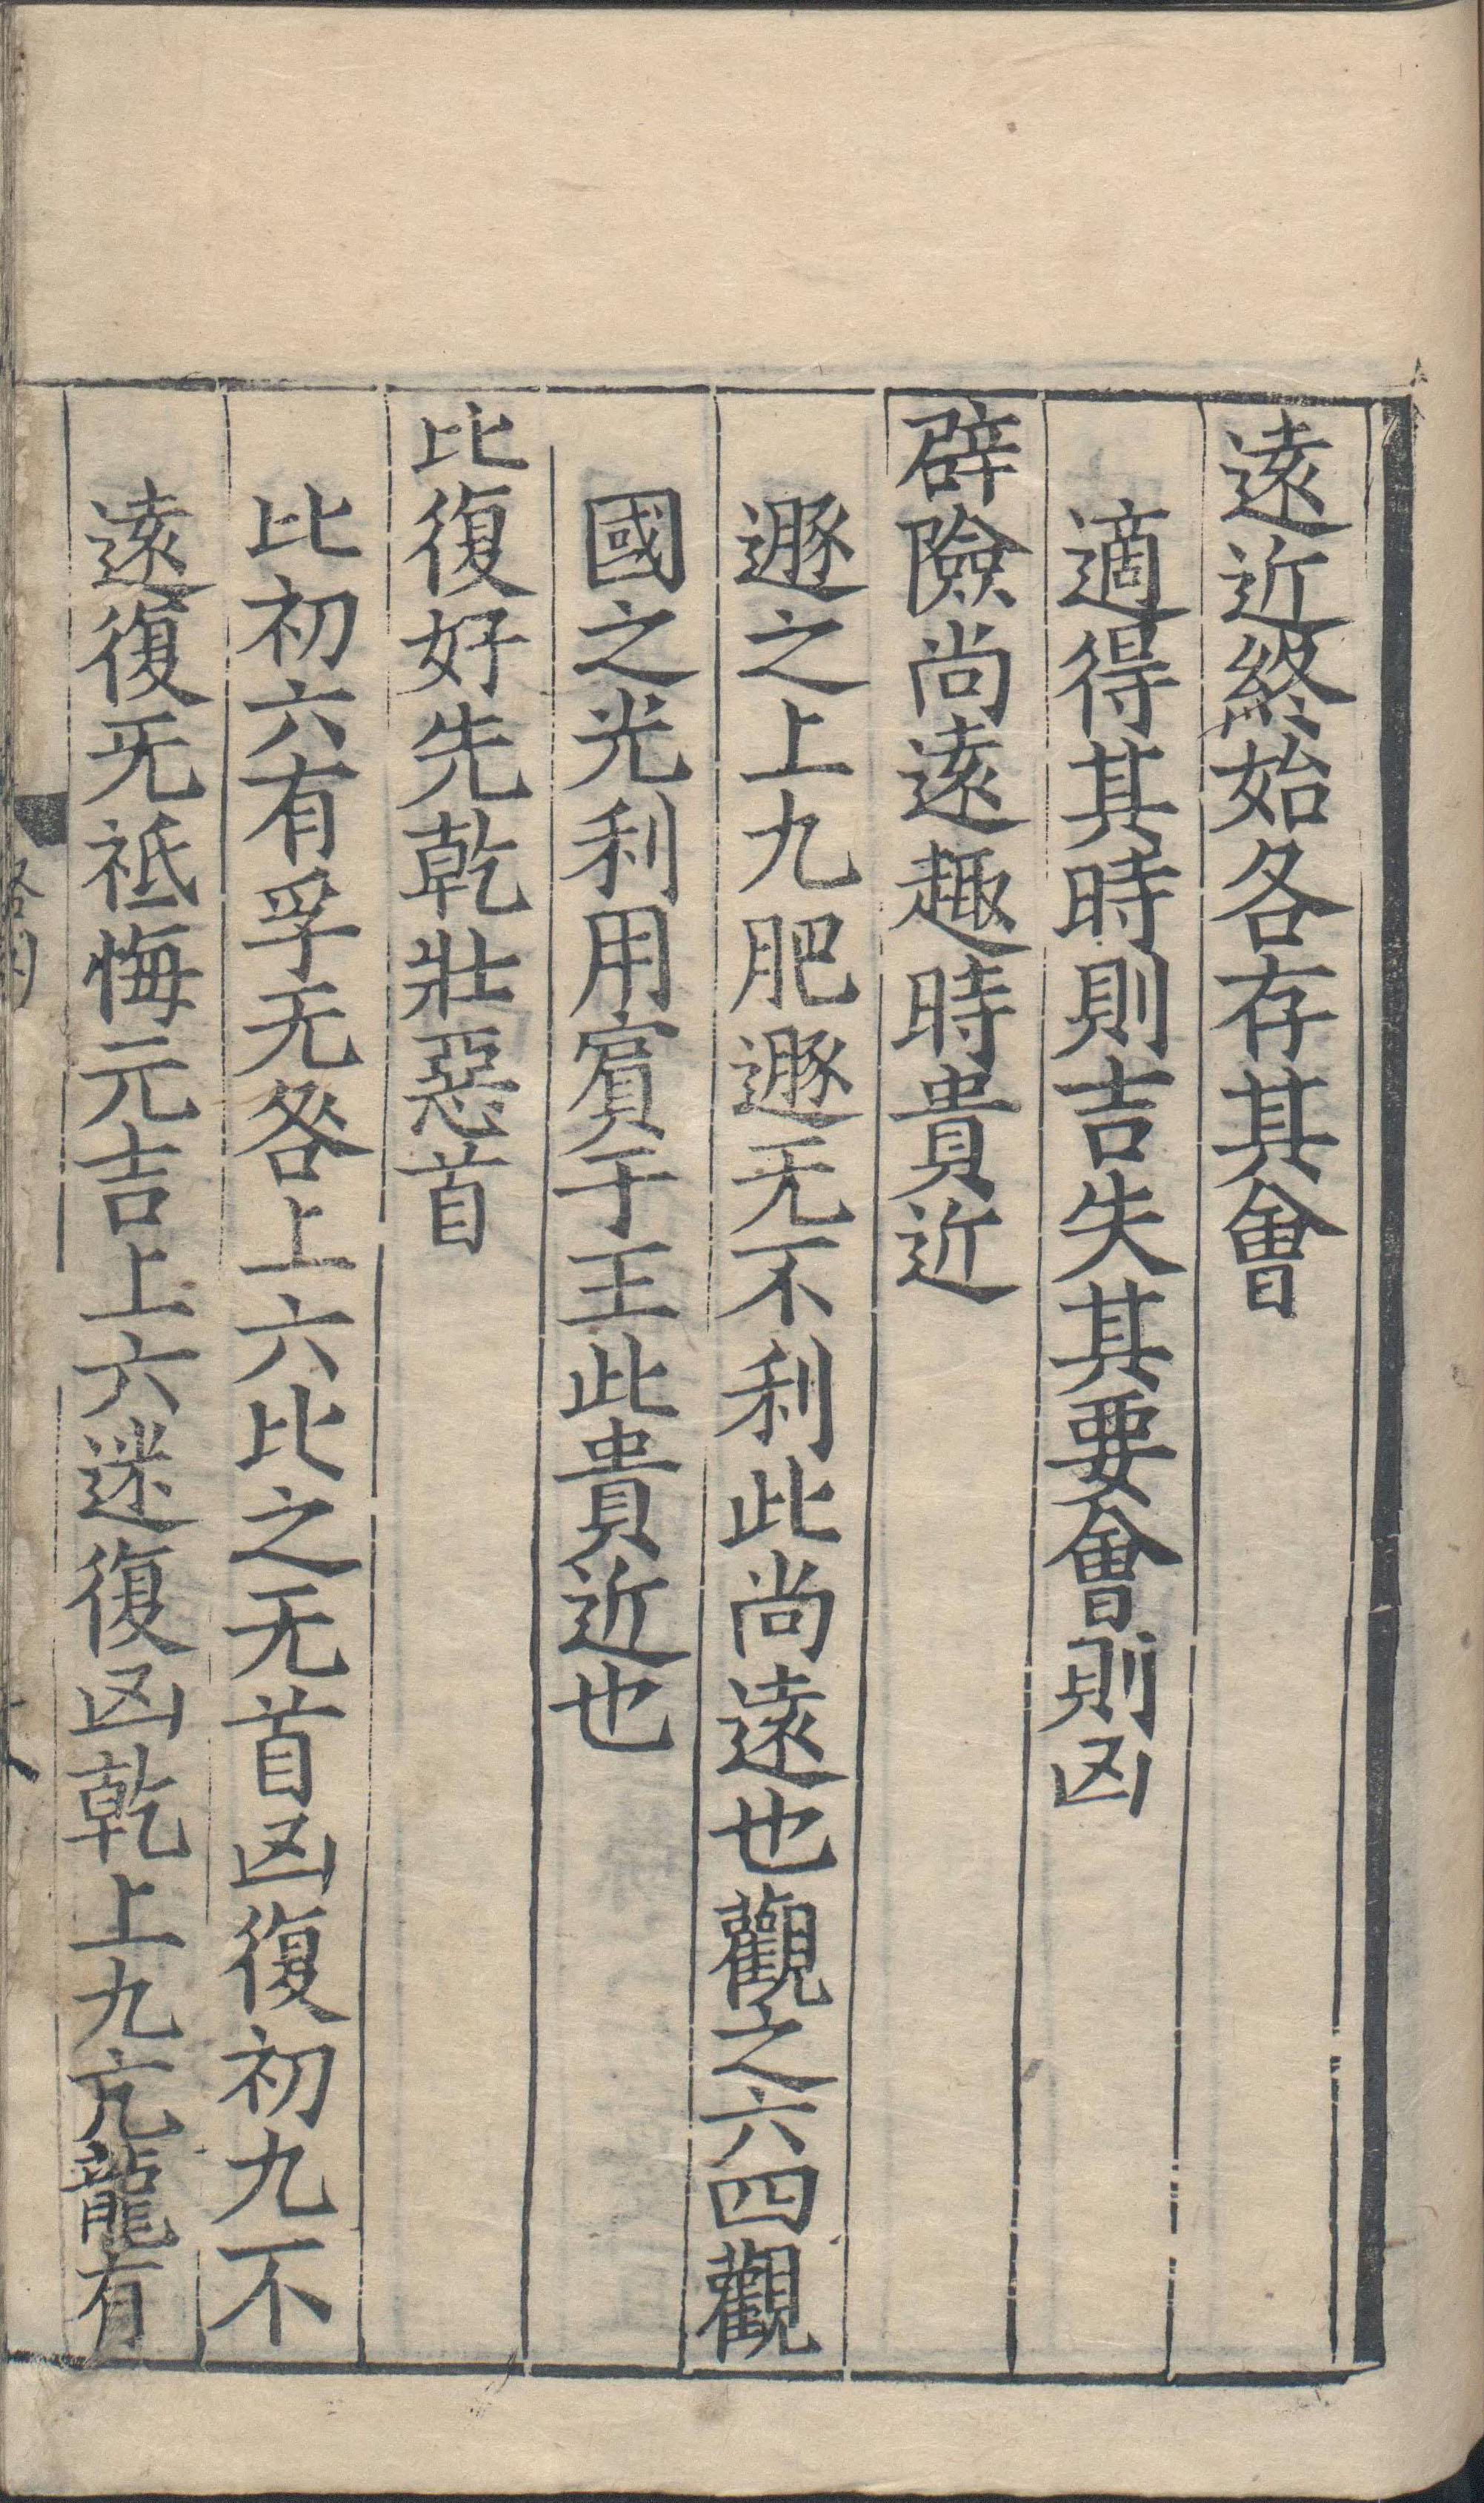 遠近終始各存其會
適得其時則吉失其要會則凶
辟險尚遠趣時貴近
遯之上九肥遯无不利此尚遠也觀之六四觀
國之光利用賓于王此貴近也
比復好先乾壯惡首
比初六有孚无咎上六比之无首凶復初九不
遠復无祗悔元吉上六迷復凶乾上九亢龍有